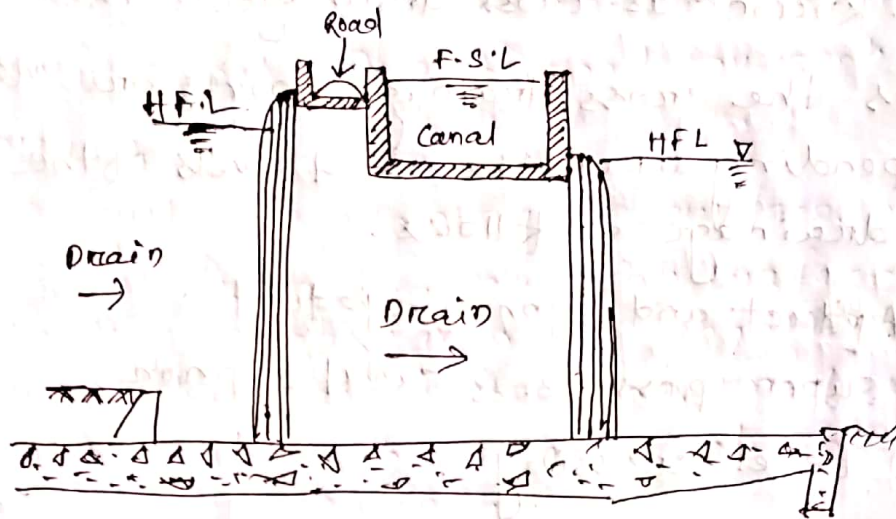 Road
F.S.L
H F.L
Canal
HFL
Drain
Drain